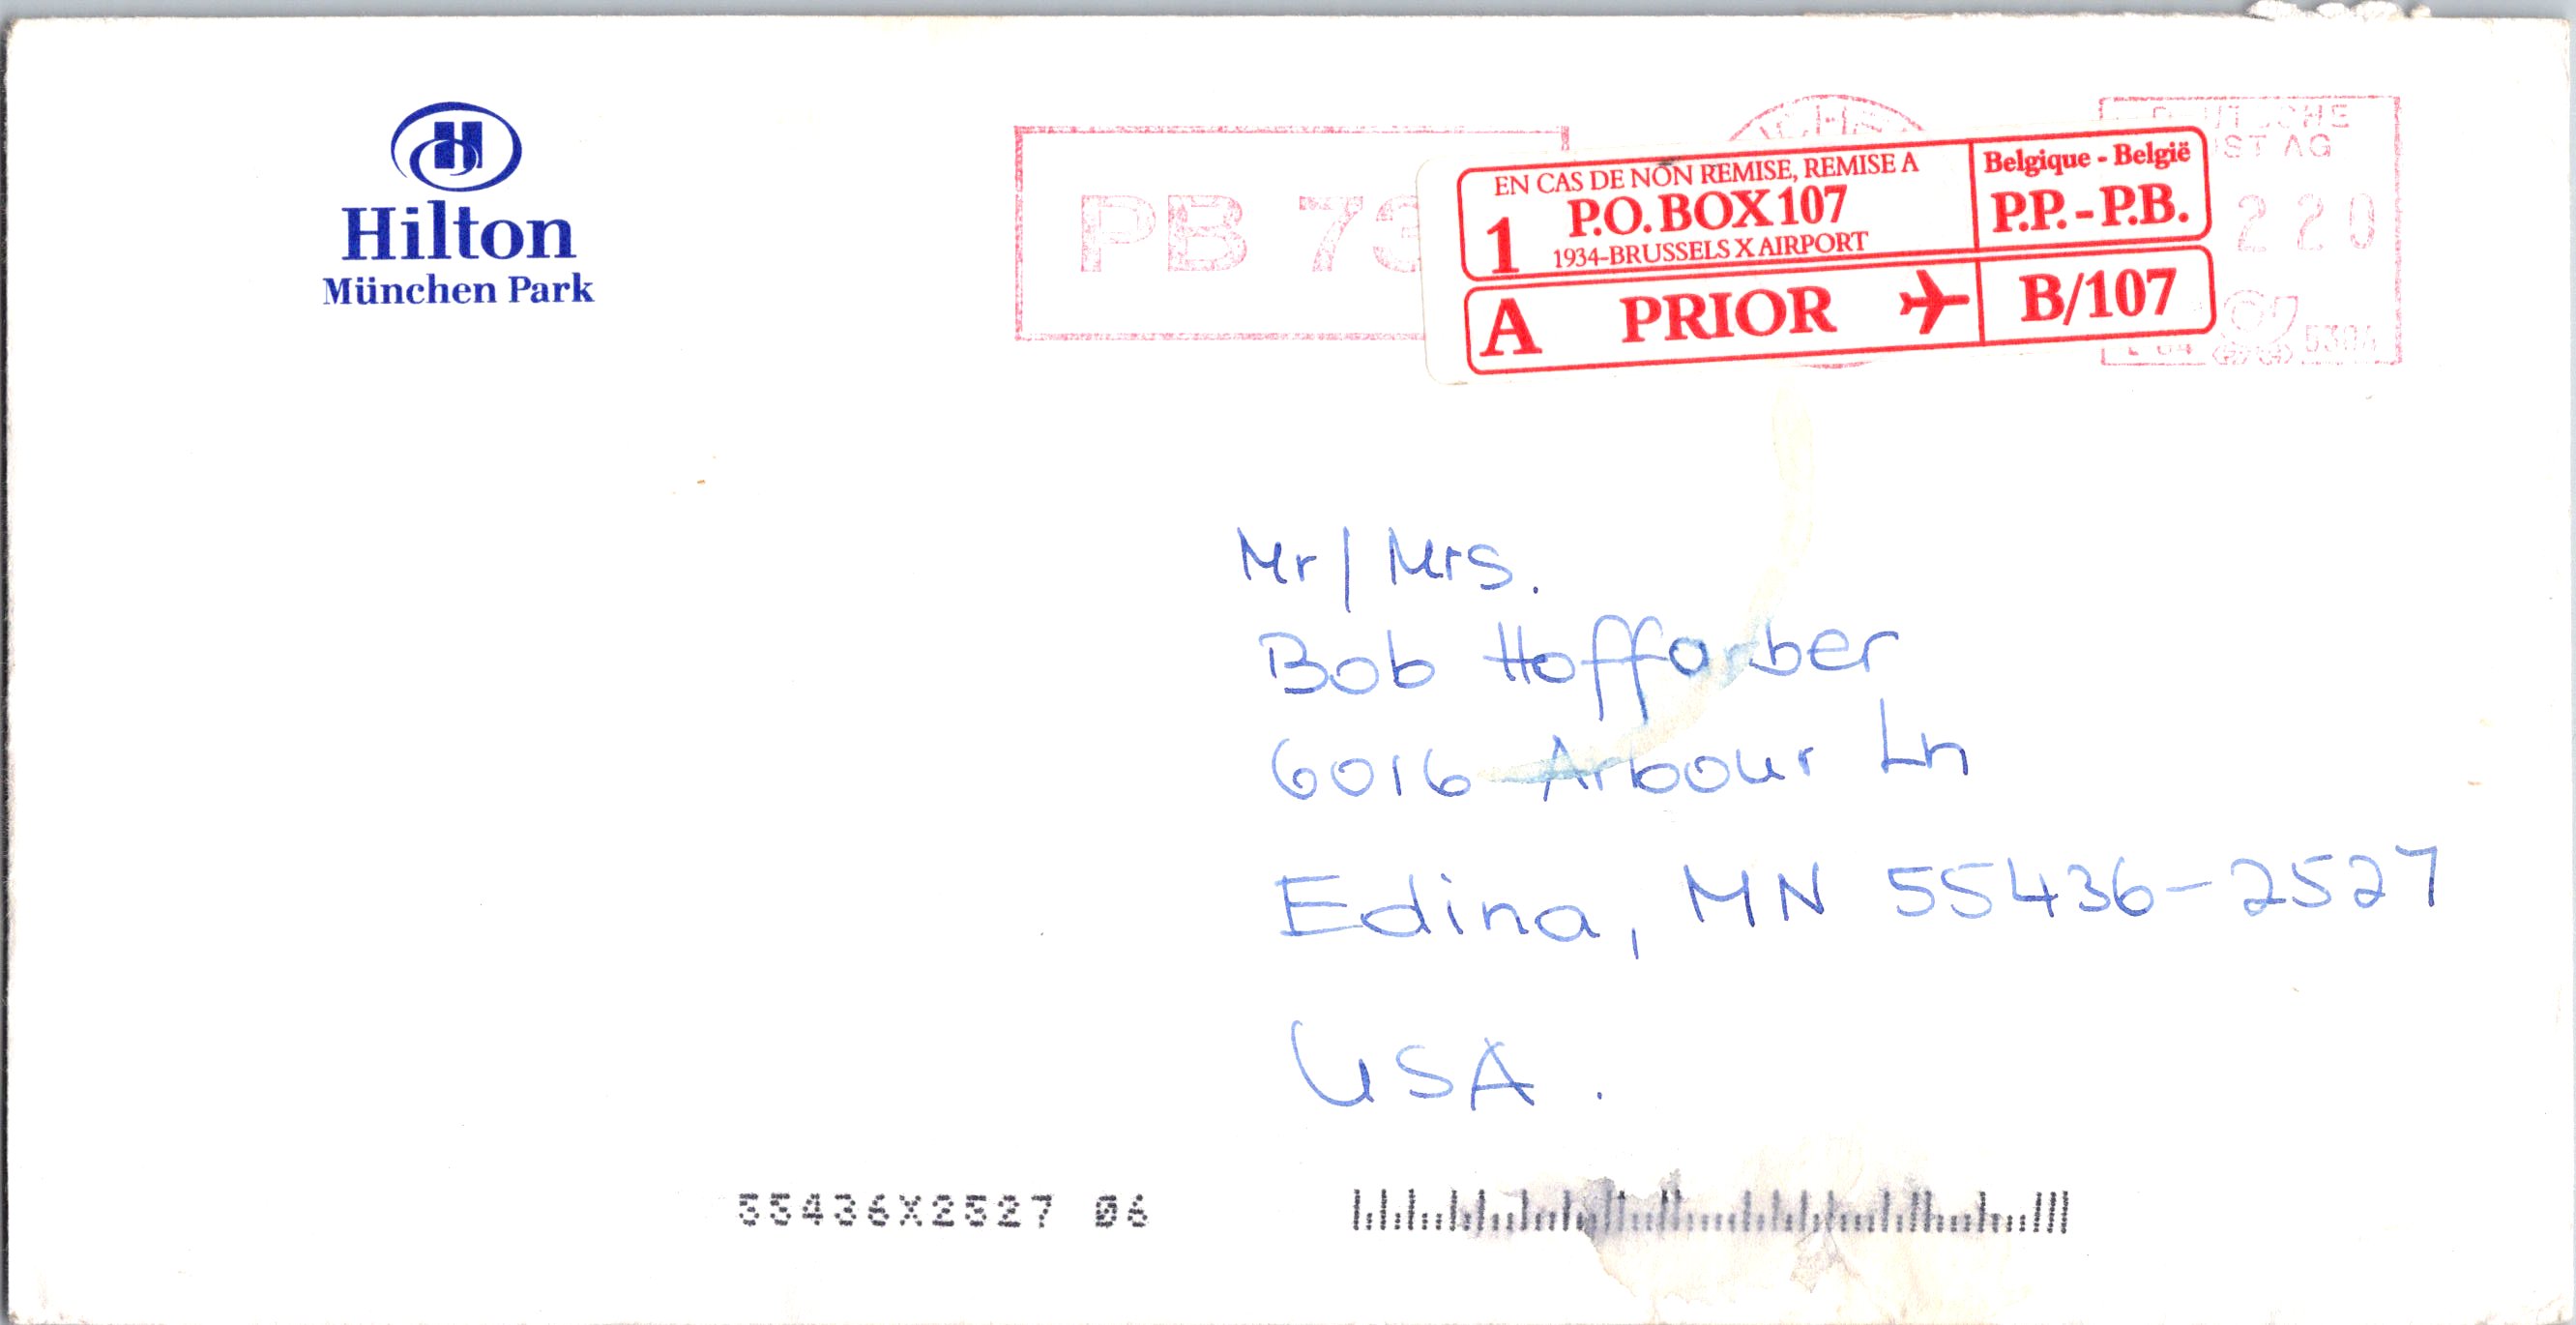 Hilton
München Park
PB 73
EN CAS DE NON REMISE, REMISE A
1 P.O. BOX 107
1934-BRUSSELS X AIRPORT
Belgique - België
P.P. - P.B.
A PRIOR B/107
ST AG
220
Mr / Mrs.
Bob Hoffarber
6016 Arbour Ln
Edina, MN 55436-2527
USA.
55436X2527 06